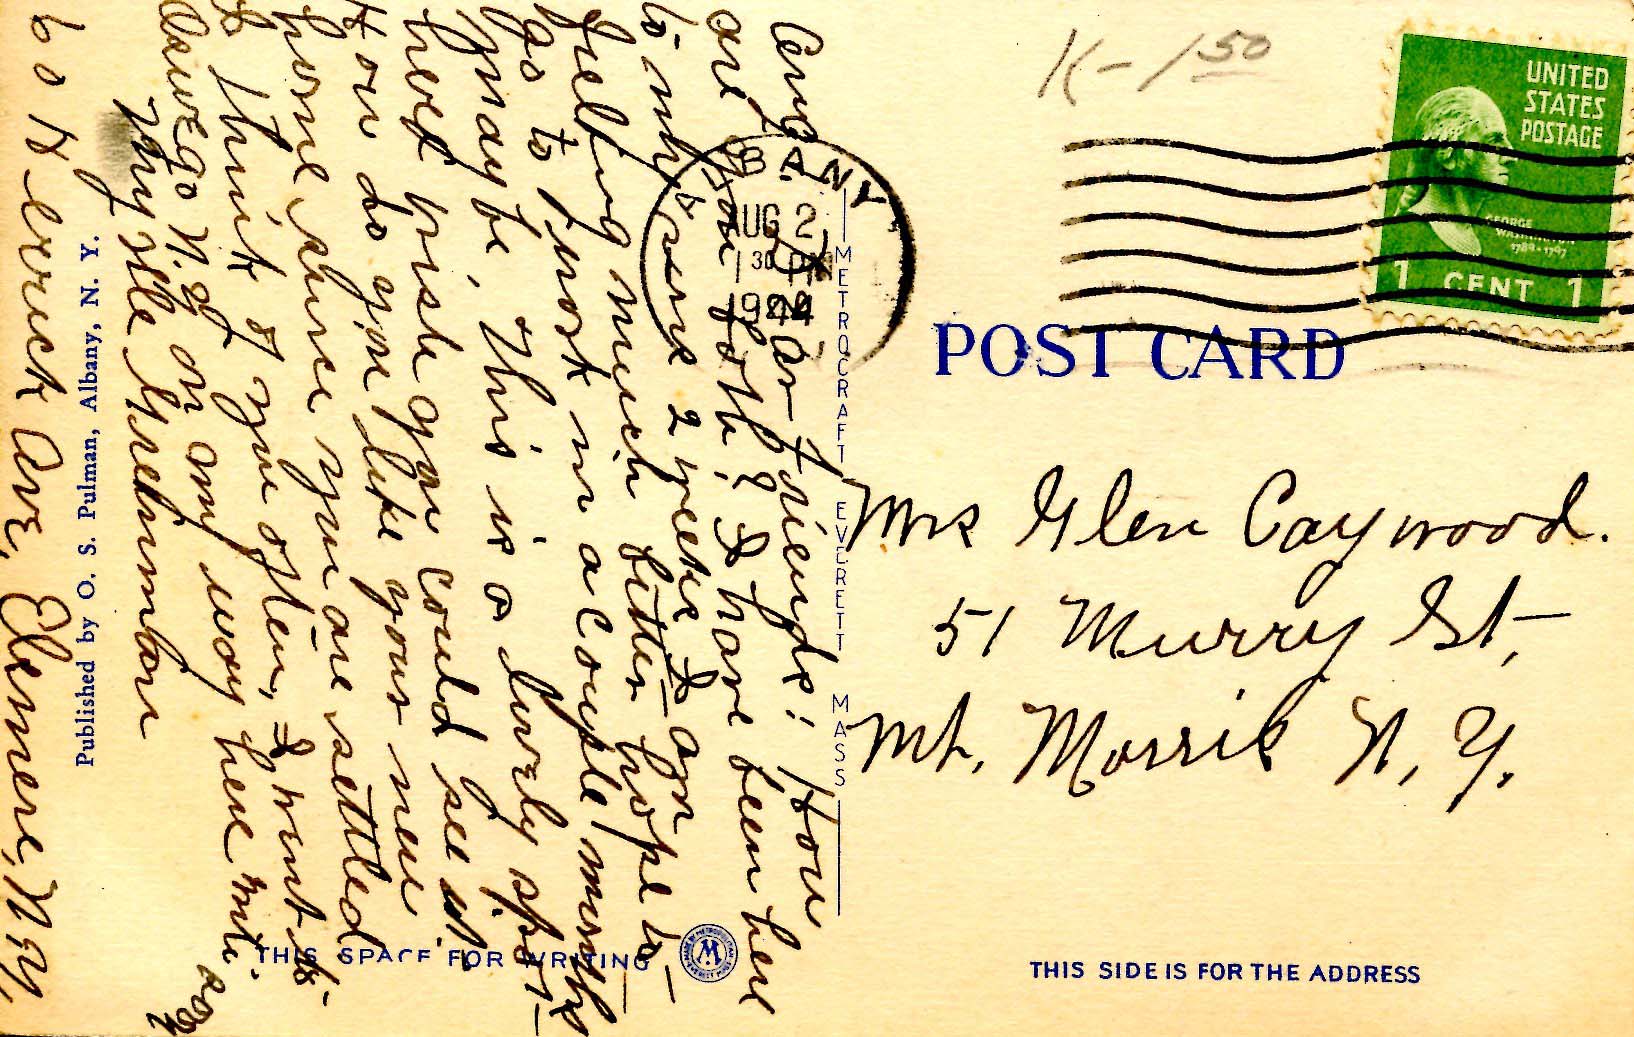 K-1 50
UNITED
STATES
POSTAGE
GEORGE
WASHINGTON
1789-1797
1 CENT 1
ALBANY
AUG 2
1 30 PM
1944
POST CARD
Mrs Glen Caywood.
51 Murry St,
Mt. Morris N. Y.
THIS SIDE IS FOR THE ADDRESS
METROCRAFT EVERETT MASS
Aug
Dear Friends: How
are you both? I have been here
to my since 2 weeks I am
feeling much better hope to
go to work in a couple months
maybe, this is a lovely spot
here wish you could see it,
How do you like your new
home since you are settled
I think of you often, I went to
Oswego N.Y on my way here
Myrtle
60 Herrick Ave, Elsmere, N.Y,
Published by O. S. Pulman, Albany, N. Y.
THIS SPACE FOR WRITING
M